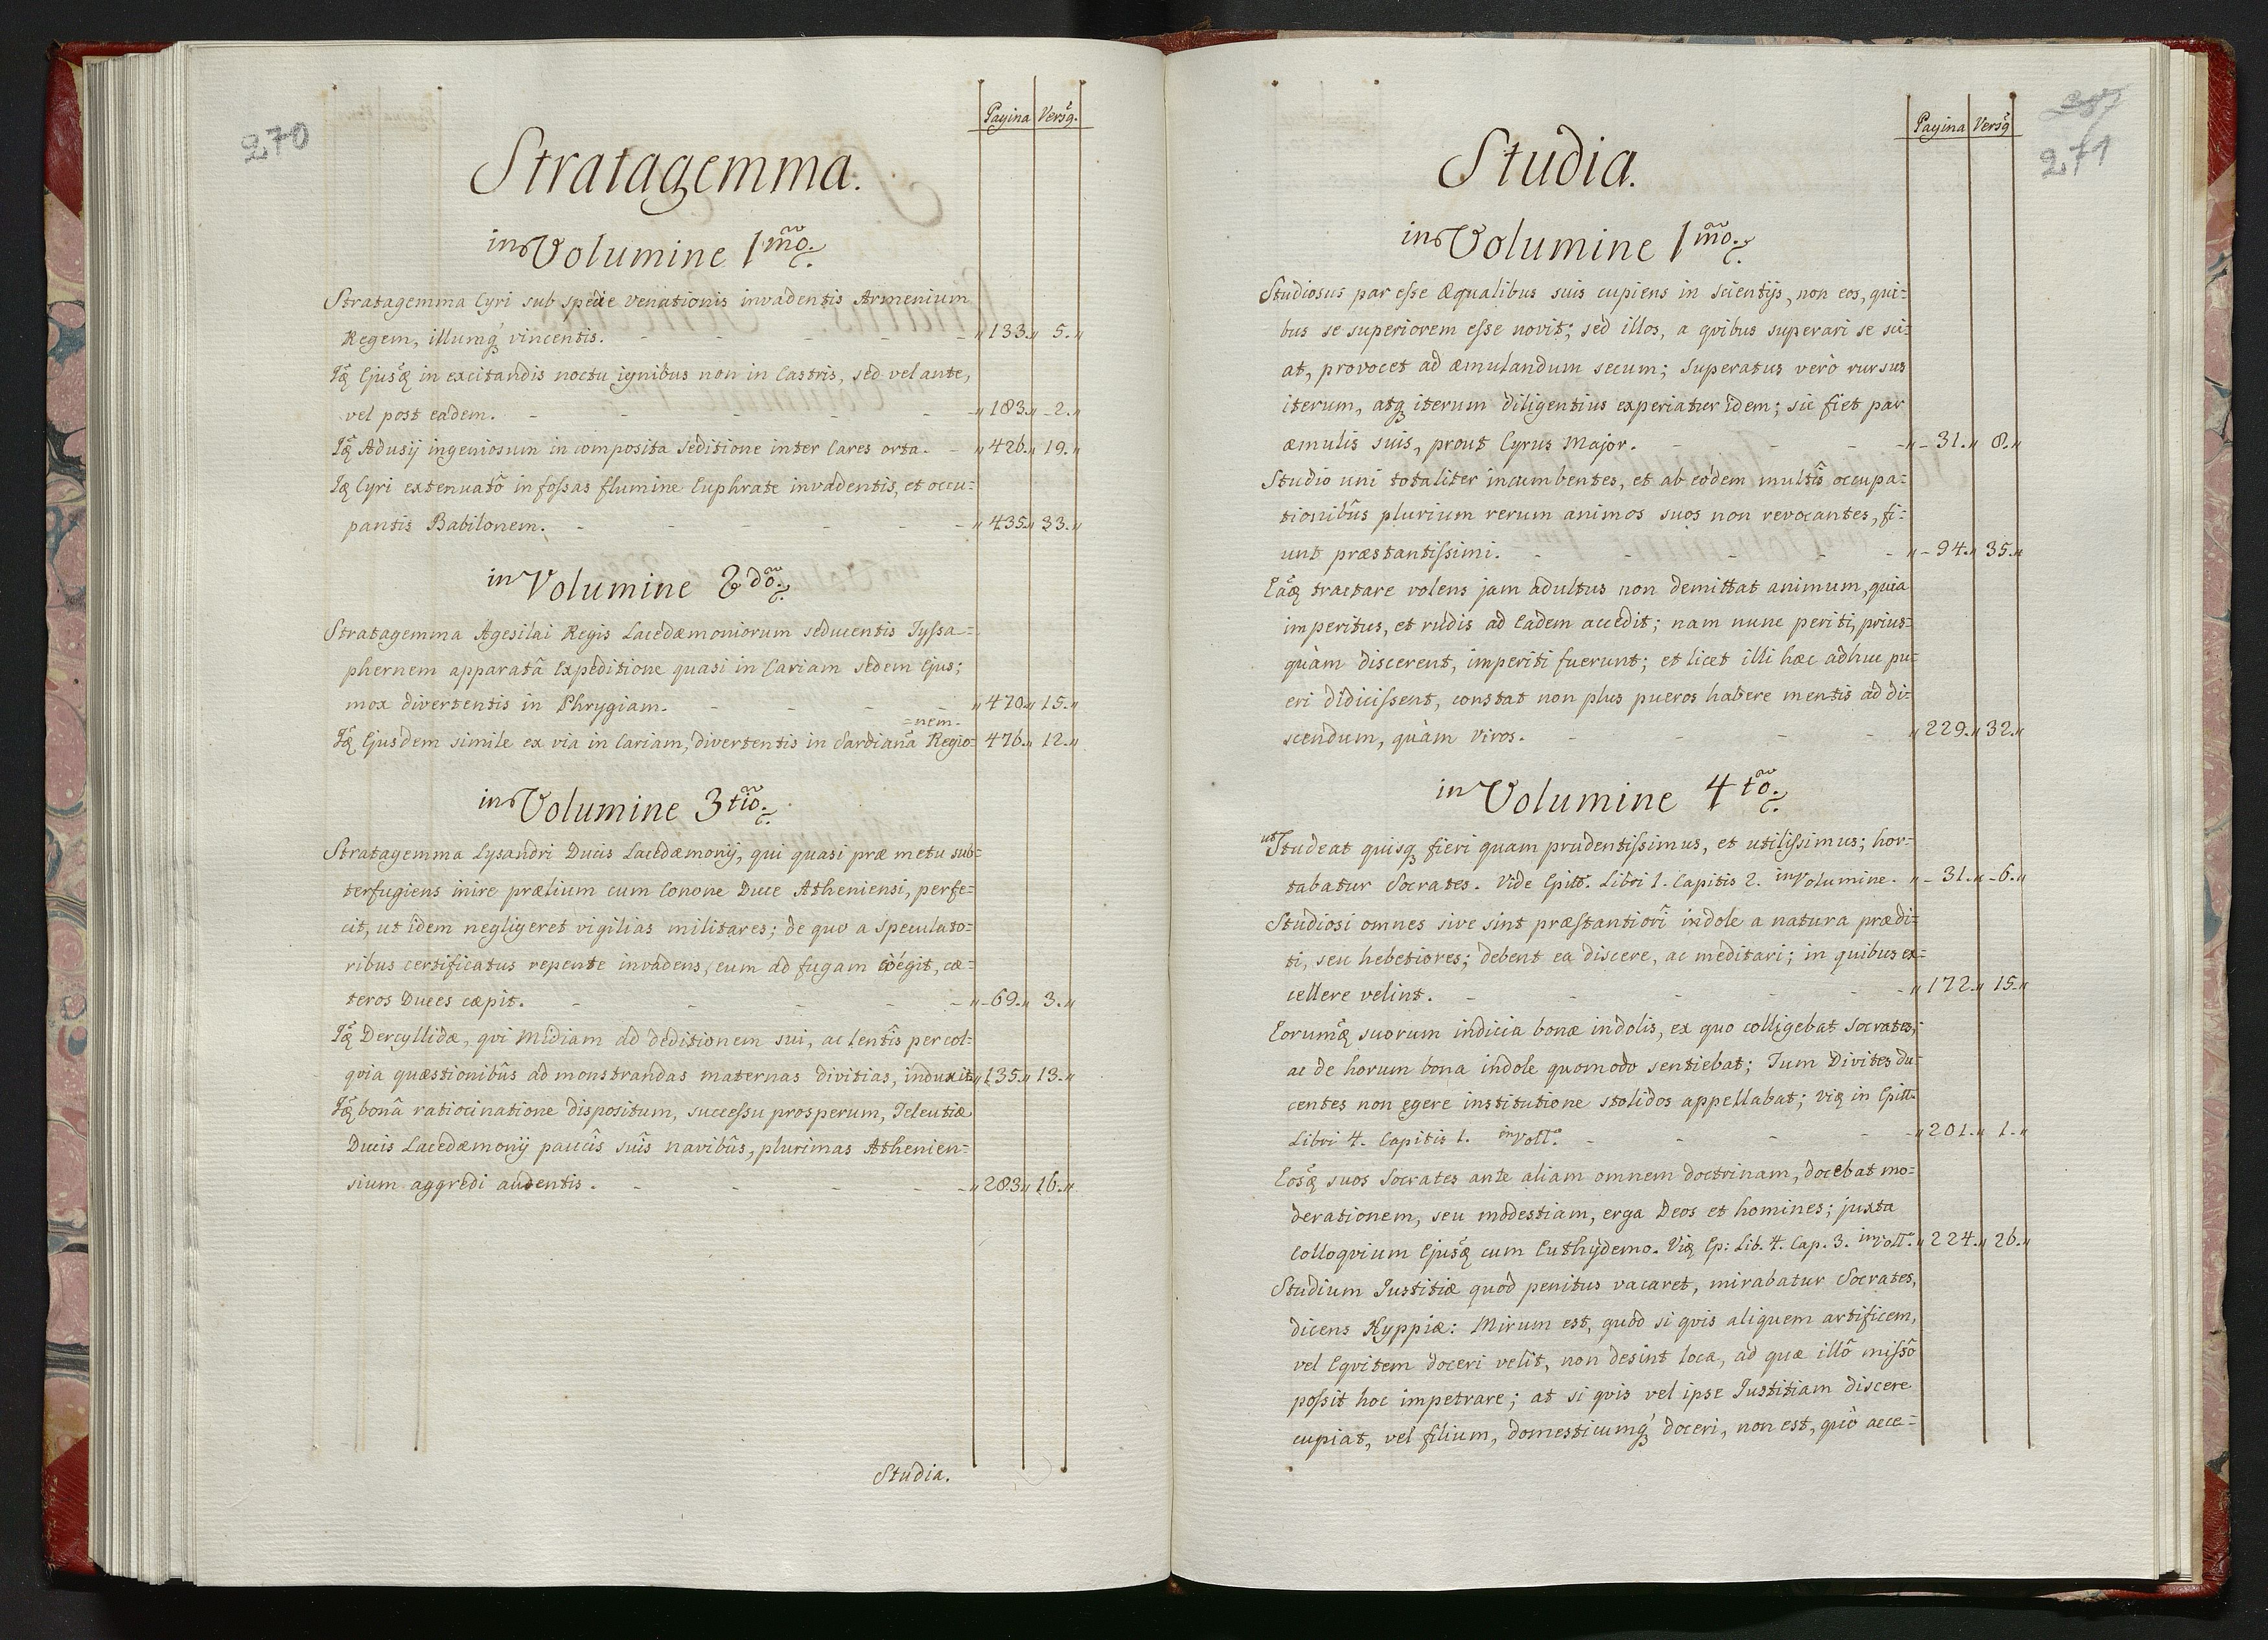 270
Pagina Versq.
Stratagemma.
in Volumine 1mo.
Stratagemma Cyri sub specie venationis invadentis Armenium
Regem, illumq́ vincentis. - - - - - „133.„ 5.„
Ejusq̃ in excitandis noctu ignibus non in Castris, sed vel ante,
vel post eadem. - - - - - - „183.„ 2.„
Adusij ingeniosum in composita seditione inter Cares orta. - „426.„ 19.„
Cyri extenuatô in fossas flumine Euphrate invadentis, et occu=
pantis Babilonem. - - - - - - „435.„ 33.„
in Volumine 2do.
Stratagemma Agesilai Regis Lacedæmoniorum seducentis Tyssa=
phernem apparatâ Expeditione quasi in Cariam sedem Ejus;
mox divertentis in Phrygiam. - - - - „470.„ 15.„
=nem.
Ejusdem simile ex via in Cariam, divertentis in Sardianã Regio= 476.„ 12.„
in Volumine 3tio.
Stratagemma Lysandri Ducis Lacedæmonij, qui quasi præ metu sub=
terfugiens inire prælium cum Conone Duce Atheniensi, perfe=
cit, ut idem negligeret vigilias militares; de quo a speculato=
ribus certificatus repente invadens, eum ad fugam coégit, cæ=
teros Duces cæpit. - - - - - „69.„ 3.„
Dercyllidæ, qvi Midiam ad deditionem sui, ac lentîs per col=
qvia quæstionibûs ad monstrandas maternas divitias, induxit „135.„ 13.„
bonâ ratiocinatione dispositum, successu prosperum, Teleutiæ
Ducis Lacedæmonij paucîs suîs navibûs, plurimas Athenien=
sium aggredi audentis. - - - - - „283„ 16.„
Studia.
271
Pagina Versq̃
Studia.
in Volumine 1mo.
Studiosus par esse Æqualibus suis cupiens in scientijs, non eos, qui=
bus se superiorem esse novit; sed illos, a qvibus superari se sci=
at, provocet ad æmulandum secum; superatus verò rursus
iterum, atq́ iterum diligentius experiatur idem; sic fiet par
æmulis suis, prout Cyrus Major. - - - „31.„ 8.„
Studio uni totaliter incumbentes, et ab eodem multîs occupa=
tionibûs plurium rerum animos suos non revocantes, fi=
unt præstantissimi. - - - - - „94.„ 35.„
Eãq̃ tractare volens jam adultus non demittat animum, quia
imperitus, et rudis ad Eadem accedit; nam nunc periti, prius=
quàm discerent, imperiti fuerunt; et licet illi hæc adhuc pu=
eri didicissent, constat non plus pueros habere mentis ad di=
scendum, quàm viros. - - - - „229.„ 32.„
in Volumine 4to.
ut Studeat quisq́ fieri quam prudentissimus, et utilissimus; hor=
tabatur Socrates. Vide Epitt. Libri 1. Capitis 2. in Volumine. „31.„ 6.„
Studiosi omnes sive sint præstantiorî indole a natura prædi=
ti, seu hebetiores; debent ea discere, ac meditari; in quibus ex=
cellere velint. - - - - - „172.„ 15.„
Eorumq̃ suorum indicia bonæ indolis, ex quo colligebat Socrates,
ac de horum bona indole quomodo sentiebat; Tum Divites du=
centes non egere institutione stolidos appellabat; Viq̃ in Epitt.
Libri 4. Capitis 1. in Voll. - - - - „201.„ 1.„
Eosq̃ suos Socrates ante aliam omnem doctrinam, docebat mo=
derationem, seu modestiam, erga Deos et homines; juxta
Colloqvium Ejusq̃ cum Euthydemo. Viq̃ Ep: Lib. 4. Cap. 3. in Voll. „224.„ 26.„
Studium Justitiæ quod penitus vacaret, mirabatur Socrates,
dicens Hyppiæ: Mirum est, quod si qvis aliquem artificem,
vel Eqvitem doceri velit, non desint loca, ad quæ illô missô
possit hoc impetrare; at si qvis vel ipse Justitiam discere
cupiat, vel filium, domesticumq́ doceri, non est, quò acce=